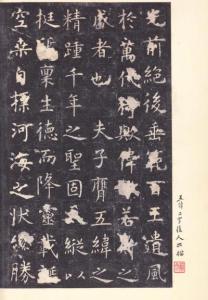 光前絕後垂範百王遺風
於萬代猗歟偉歟若斯之
盛者也 夫子膺五緯之
精踵千年之聖固縱以
挺稟生德而降靈載誕
空桑自標河海之狀纔勝
二字後人